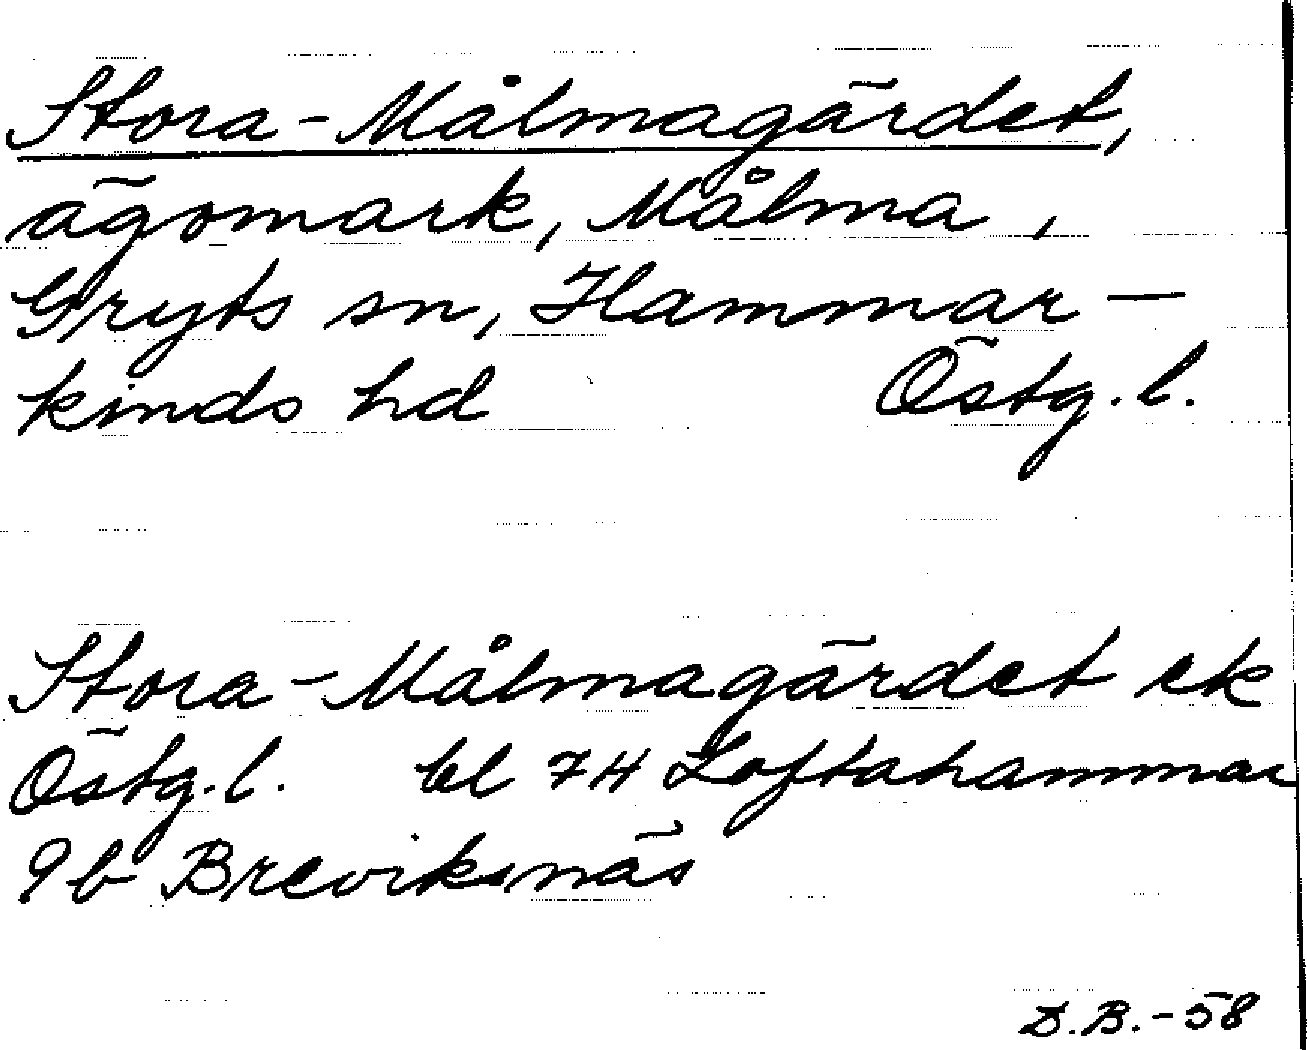 Stora-Målmagärdet,
ägomark, Målma,
Gryts sn, Hammar-
kinds hd Östg.l.
Stora-Målmagärdet ek
Östg.l. bl 7H Loftahammar
9b Breviksnäs
D.B.-58